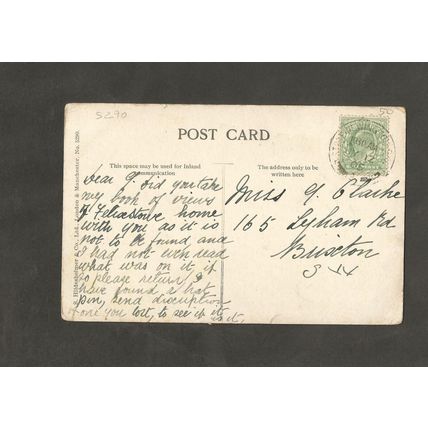 5290
50
POST CARD
This space may be used for Inland
Communication
The address only to be
written here
Dear G. did you take
my book of views
of Felixstowe home
with you as it is
not to be found and
I had not even read
what was on it, if
so please return, I
have found a hat
pin, send discription
of one you lost, to see if it is it.
Miss G. Clarke
165 Lyham Rd
Brixton
S W
& Co., Ltd., London & Manchester. No. 5290.